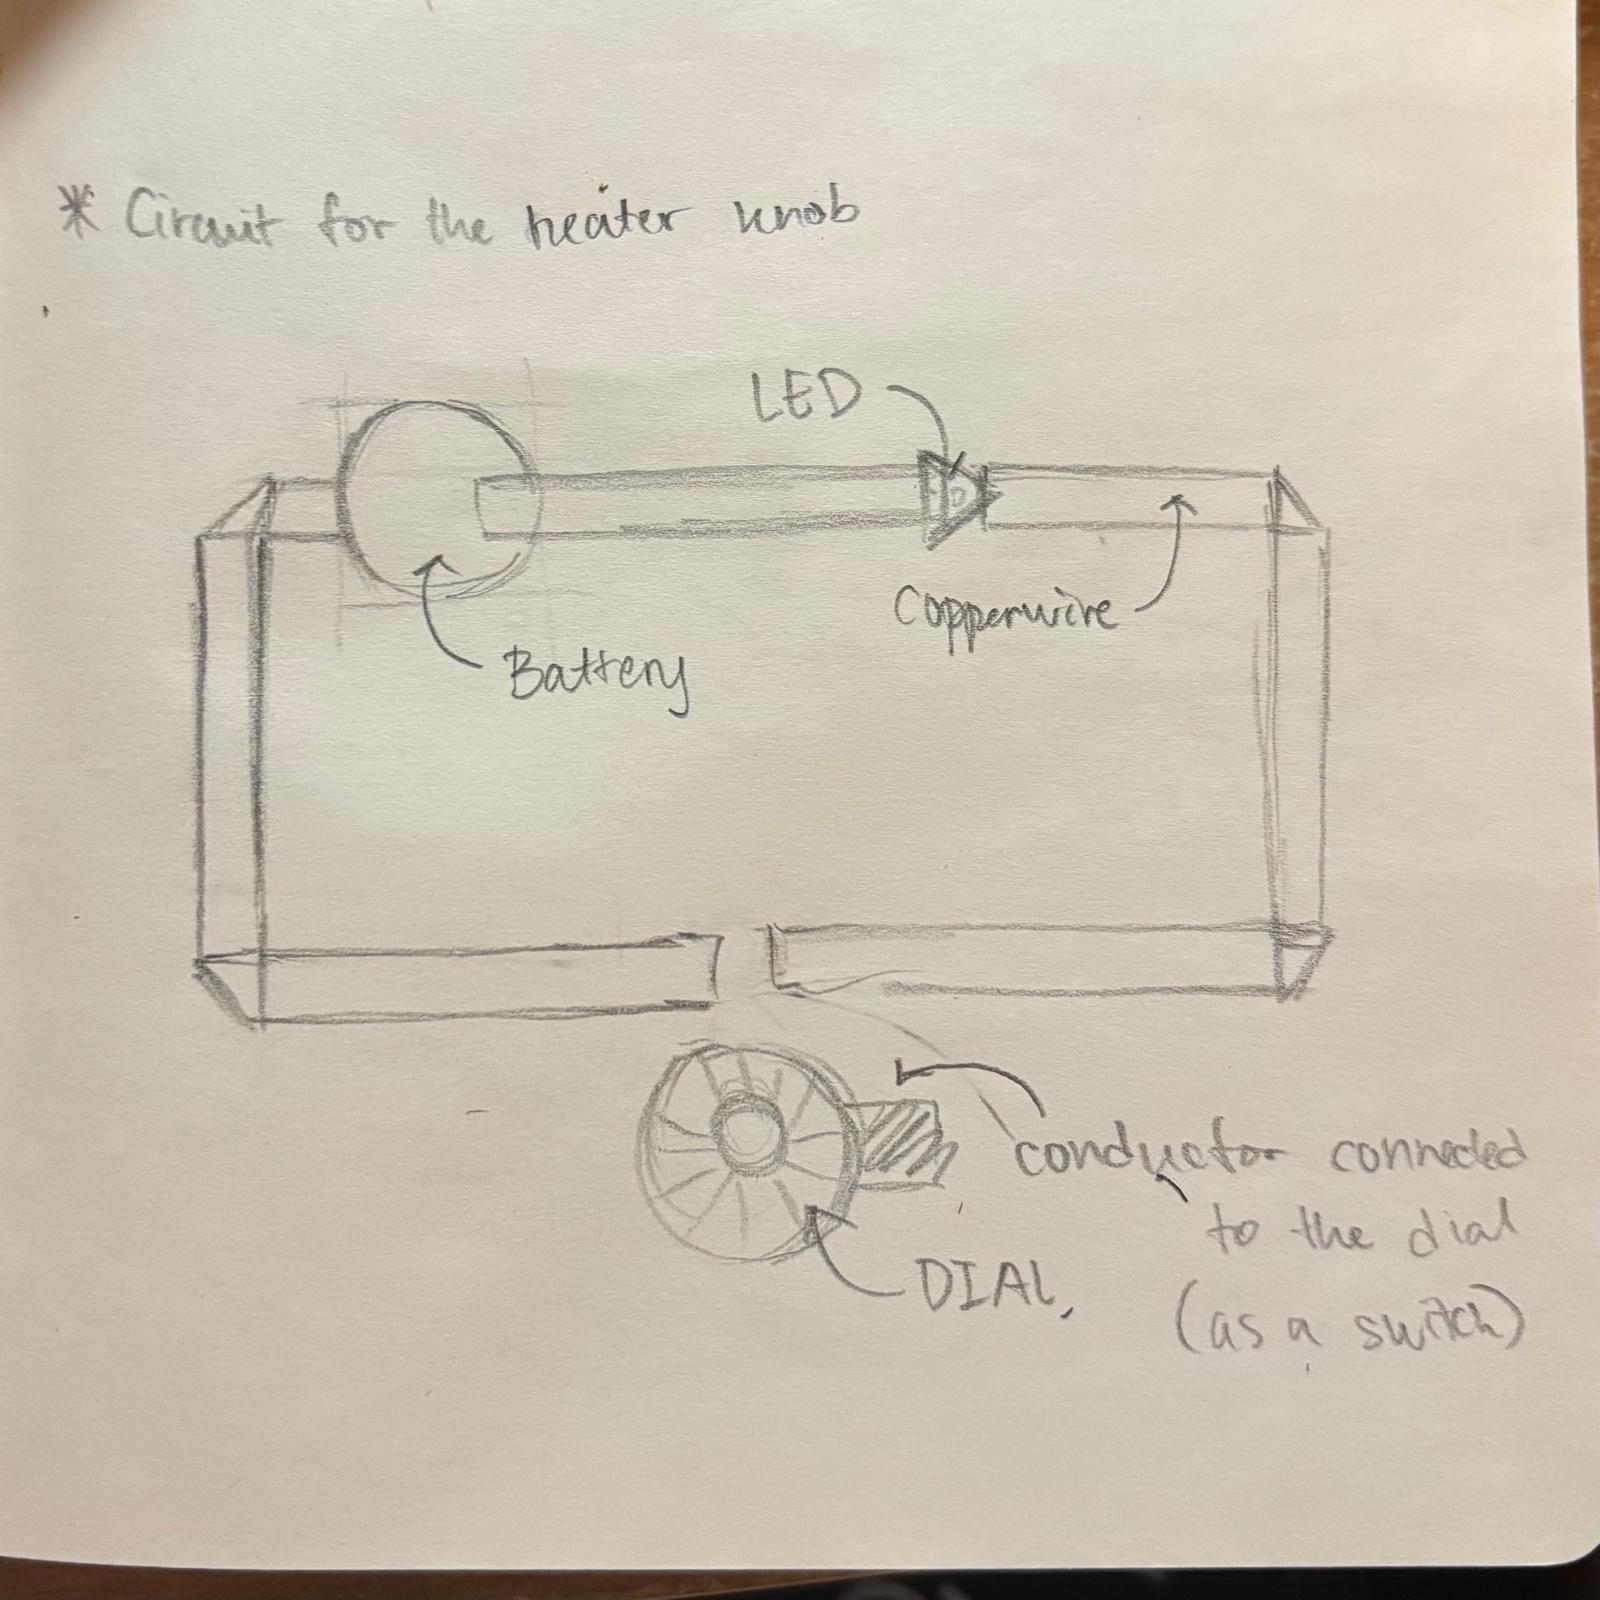 * Circuit for the heater knob
LED
Copperwire
Battery
conductor connected
to the dial
(as a switch)
DIAL